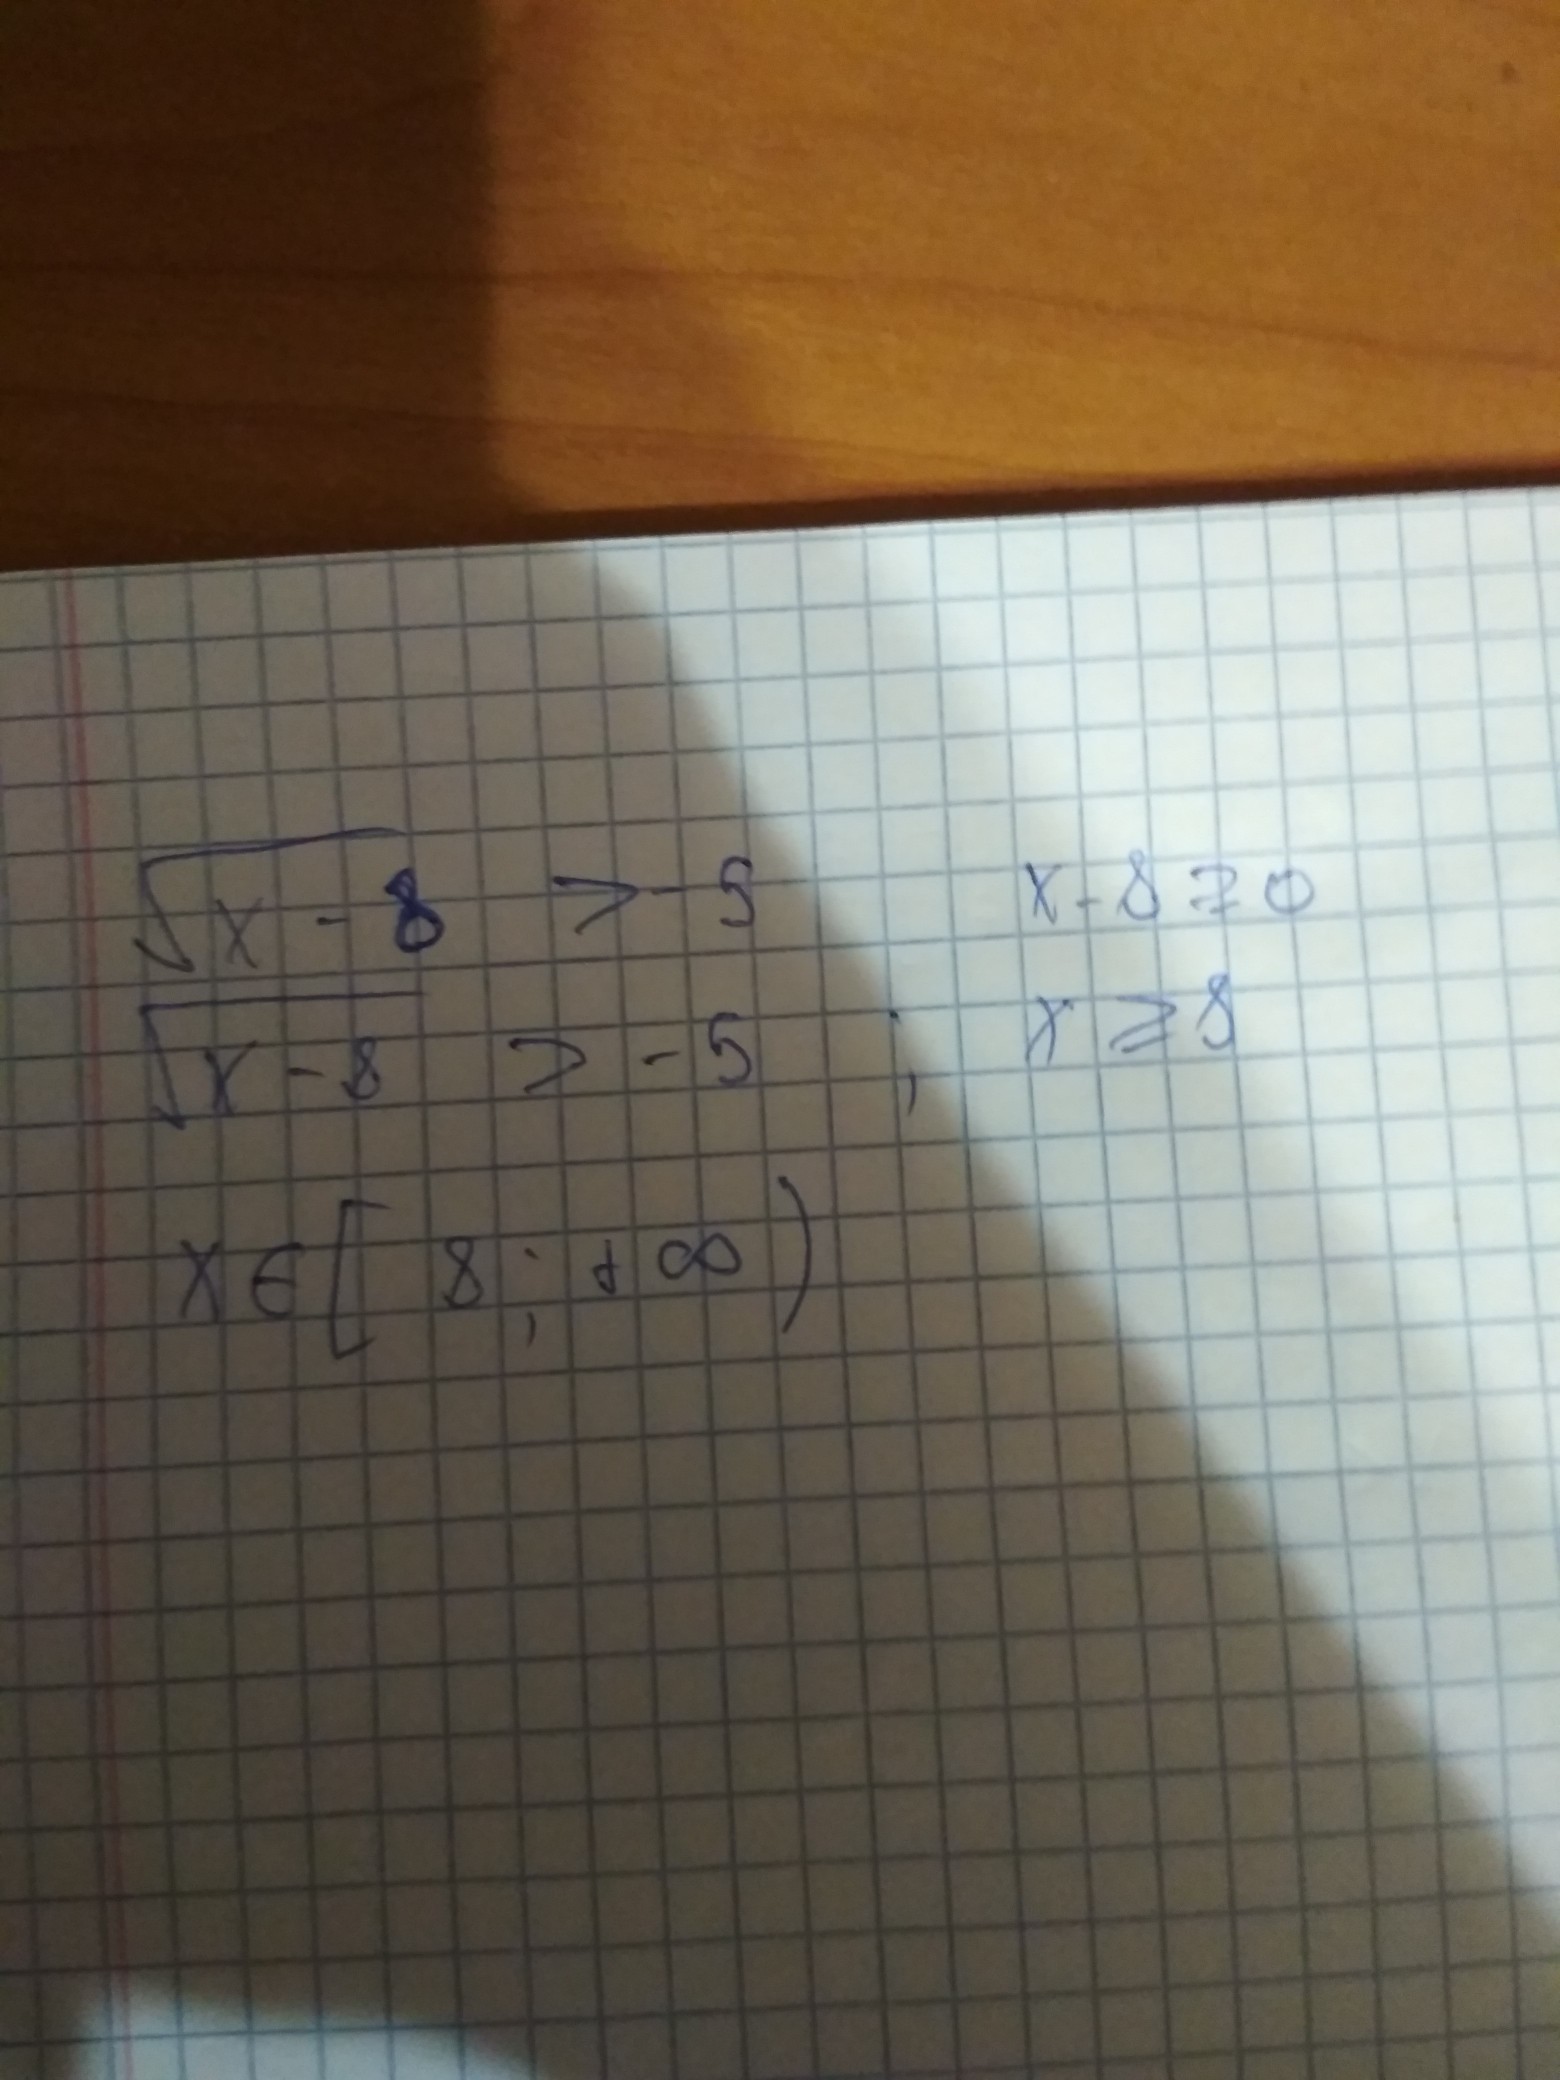 √(x - 8) > -5
x - 8 ≥ 0
√(x - 8) > -5 ; x ≥ 8
x ∈ [ 8 ; +∞ )